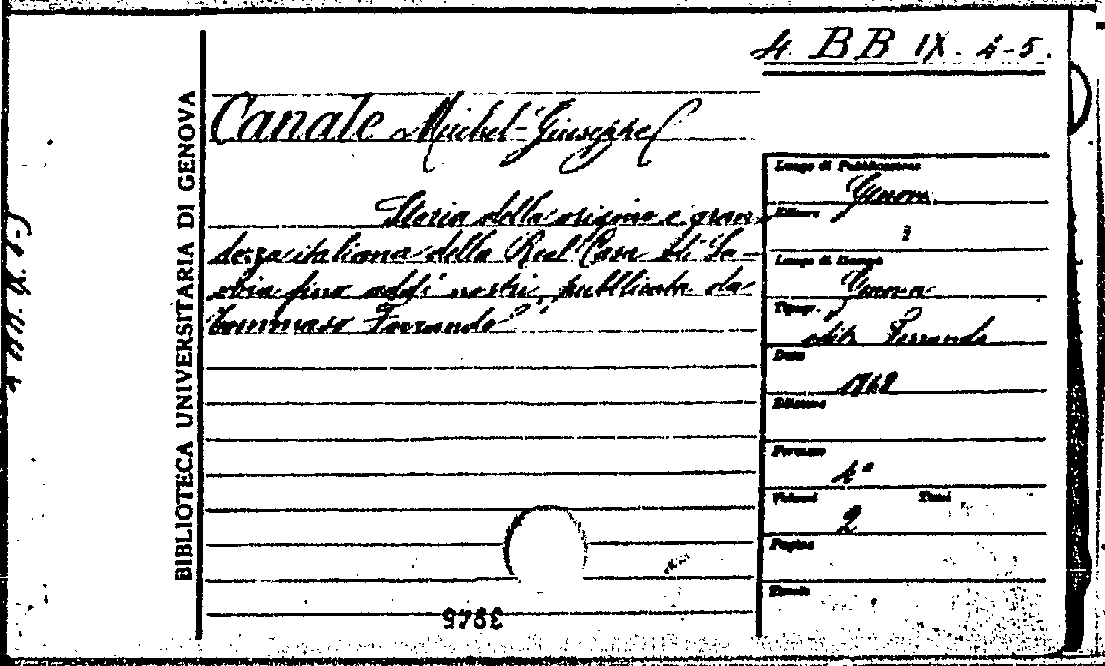 4. BB IX. 4-5.
BIBLIOTECA UNIVERSITARIA DI GENOVA
Canale Michel-Giuseppe
Storia della origine e gran-
dezza italiana della Real Casa di Sa-
voia fino addì nostri, pubblicata da
Tommaso Ferrando
Luogo di Pubblicazione
Genova
Editore
Luogo di Stampa
Genova
Tipogr.
edit. Ferrando
Data
Edizione
Formato
4°
Volumi Tomi
2
Pagine
Tavole